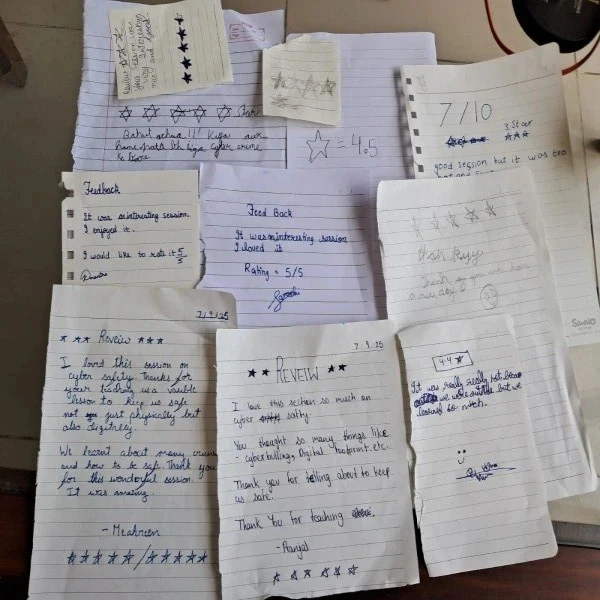 Review ☆☆☆
this Session was
very interesting
nice and good
★★★★★
Bahut achaa!!! Kiya aur
hame pata bhi
cyber crime
☆ = 4.5
7/10
3 Star
★★★
good session but it was too
Feedback
It was an interesting session.
I enjoyed it.
I would like to rate it 5/5
Feed Back
It was an interesting session
I loved it
Rating = 5/5
☆☆☆☆☆
thank
2/9/25
★ ★ ★ Reveiw ★★★
I loved this session on
cyber safety. Thanks for
your teaching us a
lesson to keep us safe
not just physically but
also digitally.
We learnt about many
and how to be safe. Thank you
for this wonderful session.
It was amazing.
- Meahreen
☆☆☆☆☆/☆☆☆☆☆
2.9.25
★★ REVEIW ★★
I love this section so much on
cyber safty.
You thought so many things like
- cyberbullying, Digital footprint etc.
Thank you for telling about to keep
us safe.
Thank You for teaching
- Pranjal
☆ ☆ ☆ ☆ ☆ ☆
4.4 ★
It was really really hot
we were outside but we
learned so much.
:)